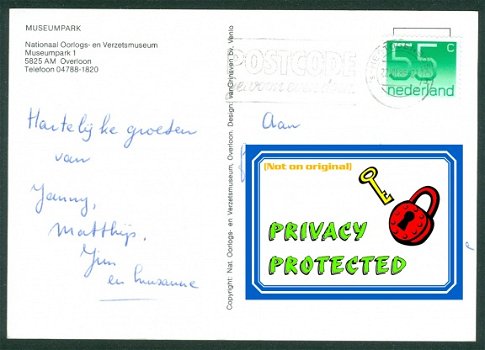 MUSEUMPARK
Nationaal Oorlogs- en Verzetsmuseum
Museumpark 1
5825 AM Overloon
Telefoon 04788-1820
Hartelijke groeten
van
Janny,
Matthijs,
Jim
en Suzanne
Copyright: Nat. Oorlogs- en Verzetsmuseum, Overloon. Design: van Grinsven bv, Venlo
POSTCODE
55 c
nederland
Aan
(Not on original)
PRIVACY
PROTECTED